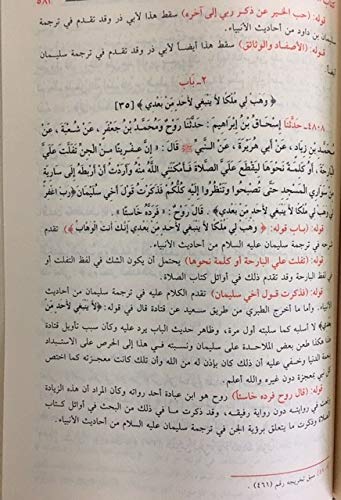 كتاب
٥٨١
قوله: (حب الخير عن ذكر ربي إلى آخره) سقط هذا لأبي ذر وقد تقدم في ترجمة
سليمان بن داود من أحاديث الأنبياء.
قوله: (الأصفاد والوثائق) سقط هذا أيضاً لأبي ذر وقد تقدم في ترجمة سليمان
أيضاً
٢ ـ بَاب
﴿ وَهَبْ لِي مُلْكًا لَا يَنْبَغِي لِأَحَدٍ مِنْ بَعْدِي ﴾ [٣٥]
٤٨٠٨ـ حَدَّثَنَا إِسْحَاقُ بْنُ إِبْرَاهِيمَ: حَدَّثَنَا رَوْحٌ وَمُحَمَّدُ بْنُ جَعْفَرٍ، عَنْ شُعْبَةَ، عَنْ
مُحَمَّدِ بْنِ زِيَادٍ، عَنْ أَبِي هُرَيْرَةَ، عَنِ النَّبِيِّ ﷺ قَالَ: «إِنَّ عِفْرِيتًا مِنَ الْجِنِّ تَفَلَّتَ عَلَيَّ
الْبَارِحَةَ، أَوْ كَلِمَةً نَحْوَهَا لِيَقْطَعَ عَلَيَّ الصَّلَاةَ فَأَمْكَنَنِي اللَّهُ مِنْهُ وَأَرَدْتُ أَنْ أَرْبِطَهُ إِلَى سَارِيَةٍ
مِنْ سَوَارِي الْمَسْجِدِ حَتَّى تُصْبِحُوا وَتَنْظُرُوا إِلَيْهِ كُلُّكُمْ فَذَكَرْتُ قَوْلَ أَخِي سُلَيْمَانَ ﴿رَبِّ اغْفِرْ
لِي وَهَبْ لِي مُلْكًا لَا يَنْبَغِي لِأَحَدٍ مِنْ بَعْدِي﴾. قَالَ رَوْحٌ: «فَرَدَّهُ خَاسِئًا»
قوله: (باب قوله: ﴿ وهب لي ملكاً لا ينبغي لأحد من بعدي إنك أنت الوهاب﴾ ) تقدم
شرحه في ترجمة سليمان عليه السلام من أحاديث الأنبياء.
قوله: (تفلت علي البارحة أو كلمة نحوها) يحتمل أن يكون الشك في لفظ التفلت أو
في لفظ البارحة وقد تقدم ذلك في أوائل كتاب الصلاة.
قوله: (فذكرت قول أخي سليمان) تقدم الكلام عليه في ترجمة سليمان من أحاديث
الأنبياء. وأما ما أخرج الطبري من طريق سعيد عن قتادة قال في قوله: ﴿لا ينبغي لأحد من
بعدي﴾ لا أسلبه كما سلبته أول مرة، وظاهر حديث الباب يرد عليه وكأن سبب تأويل قتادة
هذا هكذا طعن بعض الملاحدة على سليمان ونسبته في هذا إلى الحرص على الاستبداد
بنعمة الدنيا وخفي عليه أن ذلك كان بإذن له من الله وأن تلك كانت معجزته كما اختص
كل نبي بمعجزة دون غيره والله أعلم.
قوله: (قال روح فرده خاسئاً) روح هو ابن عبادة أحد رواته وكأن المراد أن هذه الزيادة
وقعت في روايته دون رواية رفيقه، وقد ذكرت ما في ذلك من البحث في أوائل كتاب
الصلاة وذكرت ما يتعلق برؤية الجن في ترجمة سليمان عليه السلام من أحاديث الأنبياء.
سبق تخريجه رقم (٤٦١).